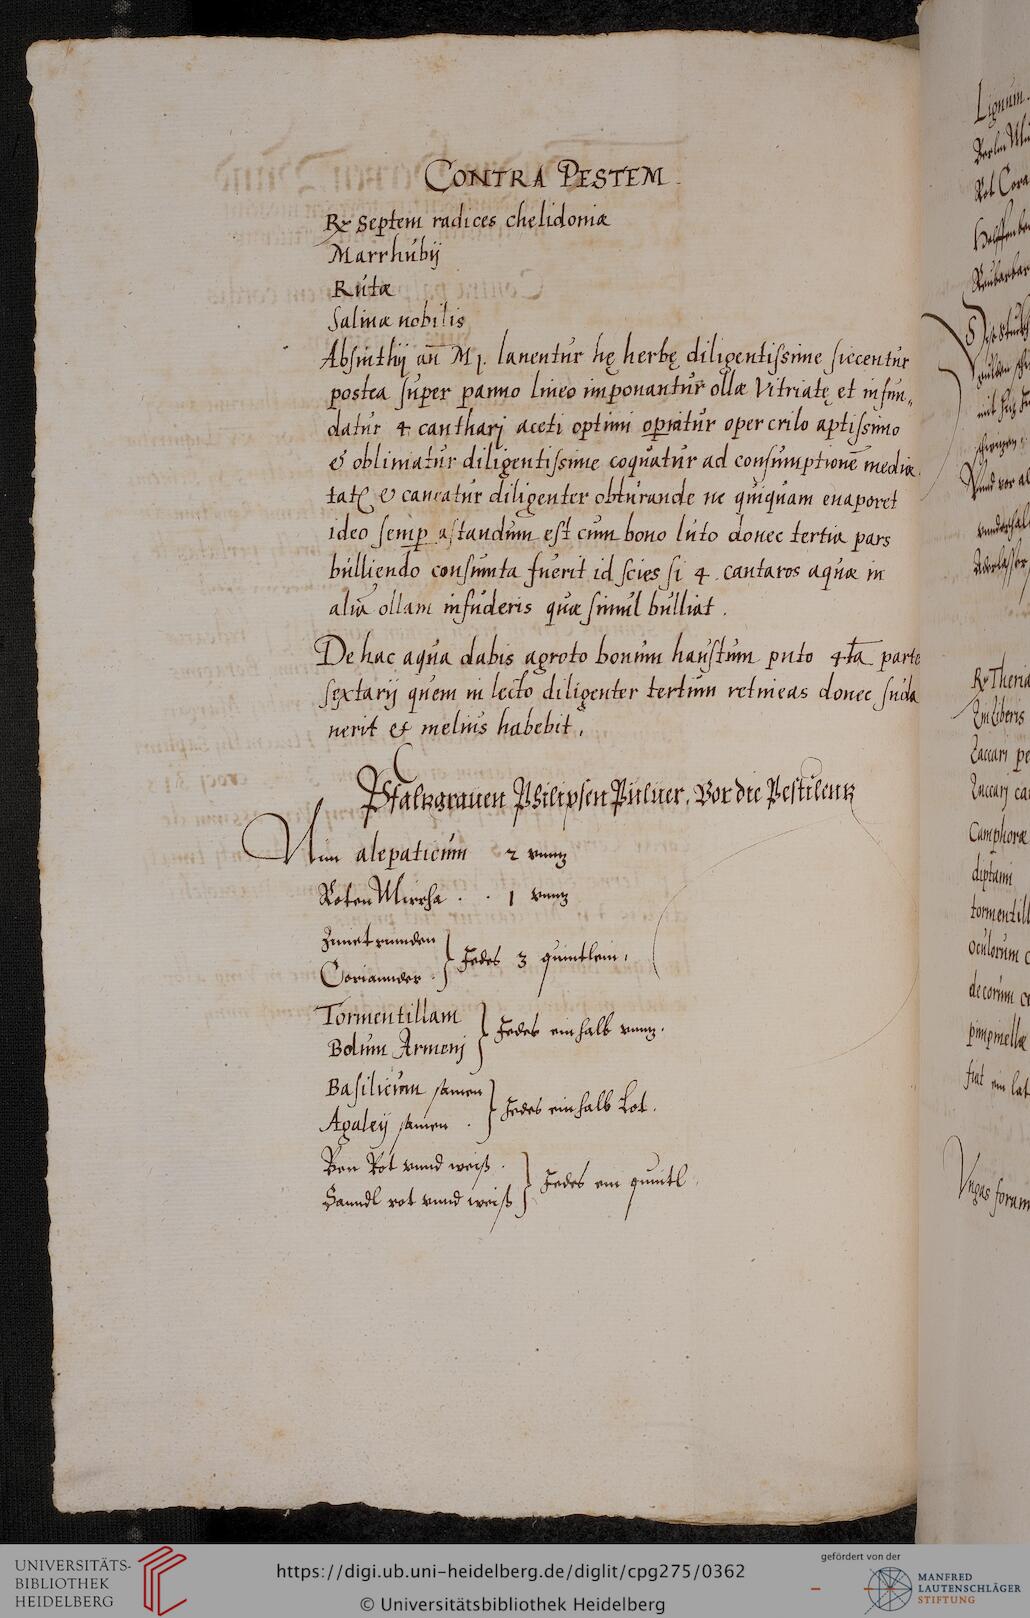 CONTRA PESTEM
℞ septem radices chelidoniæ
Marrhubij
Rutæ
Salinæ nobilis
Absinthij an̄ M j. lauentur hę herbę diligentissime siccentur
postea super panno lineo imponantur ollæ vitriatę et infun„
datur 4 cantharj aceti optimi operiatur opercrilo aptissimo
& obliniatur diligentissime coquatur ad consumptionē mediæ
& caueatur diligenter obturande ne quiquam euaporet
ideo semp astandum est cum bono luto donec tertia pars
bulliendo consumta fuerit id scies si 4 cantaros aquæ in
aliā ollam infuderis quæ simul bulliat.
De hac aqua dabis ægroto bonum haustum puto 4ta parte
sextarij quem in lecto diligenter tectum retineas donec suda
uerit et melius habebit.
Pfalzgrauen Philipsen Puluer, Vor die Pestilentz
Nim alepaticum 2 vnntz
Roten Mirrha . . 1 vnntz
Zimetrinnden
Coriannder } Jedes 3 quintlein.
Tormentillam
Bolum Armenj } Jedes ein halb vnntz.
Basilicum samen
Agaleÿ samen . } Jedes ein halb Lot.
Ben Rot vnnd weiß .
Sanndl rot vnnd weiß } Jedes ein quintl
Lignum
Rot Cora
℞ Theria
Zinziberis
Zaccari
Zaccarj
Camphoræ
diptami
tormentill
oculorum
de corum
pimpinellæ
fiat ein lat
foram
UNIVERSITÄTS-
BIBLIOTHEK
HEIDELBERG
https://digi.ub.uni-heidelberg.de/diglit/cpg275/0362
© Universitätsbibliothek Heidelberg
gefördert von der
MANFRED
LAUTENSCHLÄGER
STIFTUNG